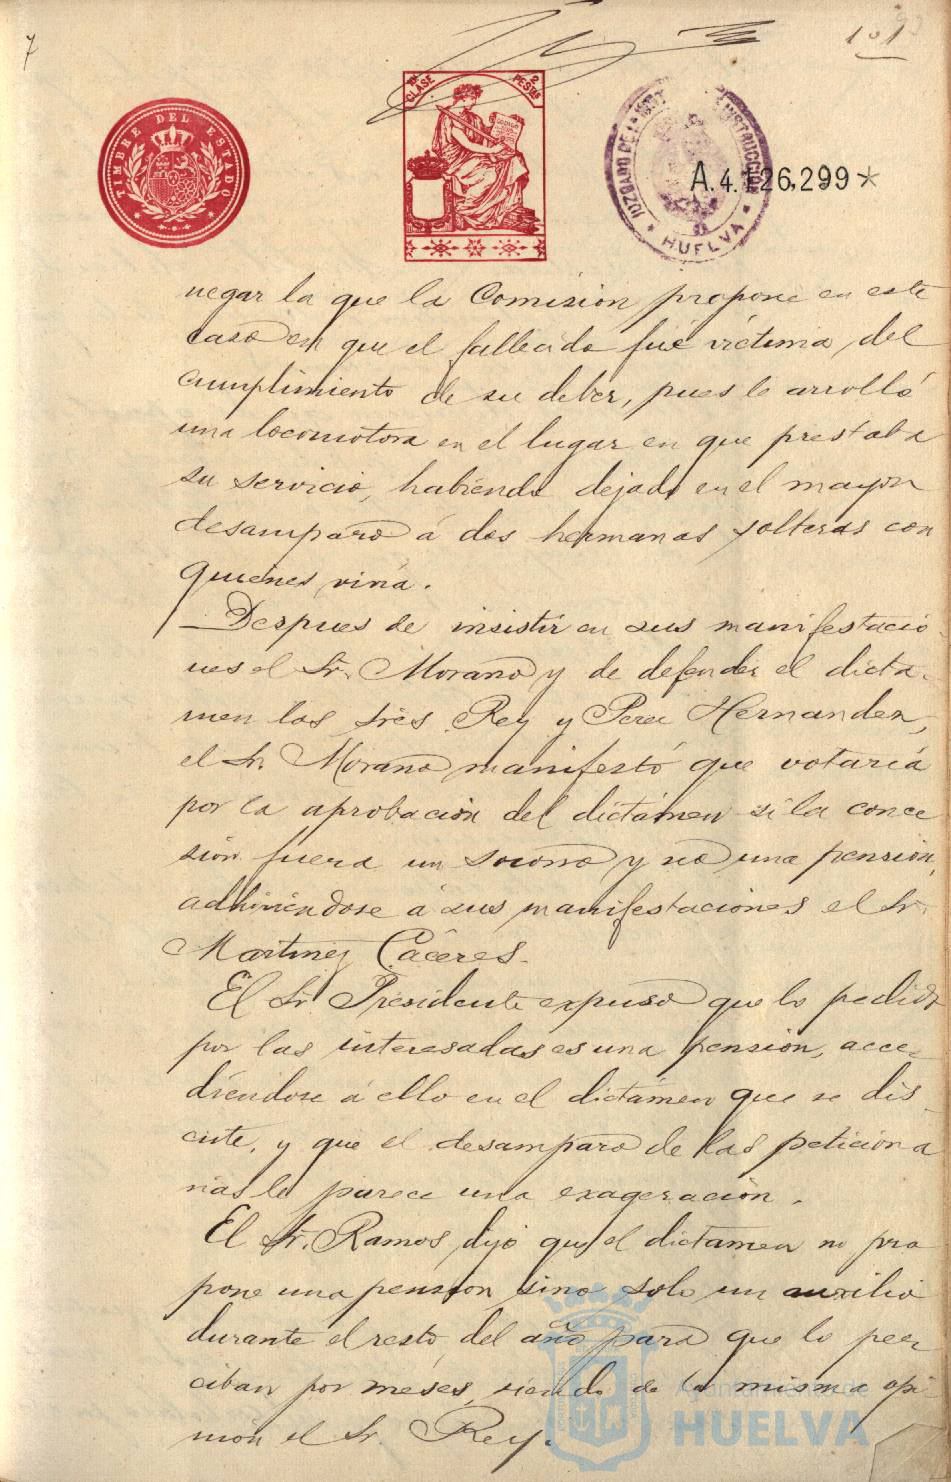 7
101
TIMBRE DEL ESTADO
CLASE
2
PESTAS
JUZGADO DE INSTRUCCIÓN
HUELVA
A.4.126,299*
negar la que la Comisión propone en este
caso en que el fallecido fué víctima del
cumplimiento de su deber, pues le arrolló
una locomotora en el lugar en que prestaba
su servicio, habiendo dejado en el mayor
desamparo á dos hermanas solteras con
quienes vivía.
Despues de insistir en sus manifestacio
nes el Sr. Morano y de defender el dicta-
men los Sres Rey y Perez Hernandez,
el Sr. Morano manifestó que votaría
por la aprobación del dictámen si la conce
sión fuera un socorro y no una pensión,
adhiriéndose á sus manifestaciones el Sr.
Martinez Cáceres.
El Sr. Presidente expuso que lo pedido
por las interesadas es una pensión, acce-
diéndose á ello en el dictámen que se dis-
cute, y que el desamparo de las peticiona
rias le parece una exageración.
El Sr. Ramos dijo que el dictamen no pro
pone una pensión sino solo un auxilio
durante el resto del año para que lo per
ciban por meses, siendo de la misma opi
nión el Sr. Rey.
Ayuntamiento de
HUELVA